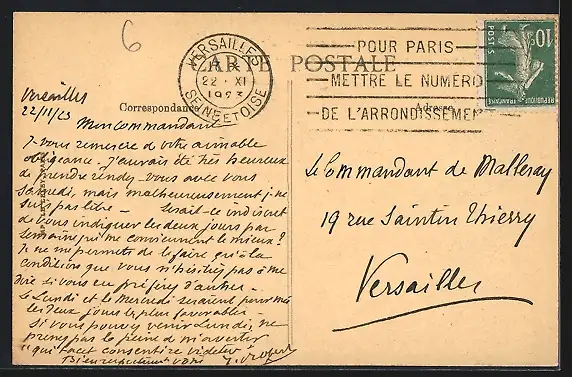 6
VERSAILLES
22 · XI
1923
SEINE ET OISE
POUR PARIS
METTRE LE NUMÉRO
DE L'ARRONDISSEMEN
10c
POSTES
REPUBLIQUE FRANÇAISE
CARTE POSTALE
Correspondance
Adresse
Versailles
22/11/23
Mon Commandant
Je vous remercie de votre aimable
obligeance. J'aurais été très heureux
de prendre rendez-vous avec vous
samedi, mais malheureusement je ne
suis pas libre — Serait-ce indiscret
de vous indiquer les deux jours par
semaine qui me conviennent le mieux?
Je ne me permets de le faire qu'à la
condition que vous n'hésitiez pas à me
dire si vous en préférez d'autres —
Le Lundi et le Mercredi seraient pour moi
les deux jours les plus favorables —
Si vous pouvez venir Lundi, ne
prenez pas la peine de m'avertir
"qui tacet consentire videtur"
Bien respectueusement vôtre
Le Commandant de Malleray
19 rue Saintin Thierry
Versailles